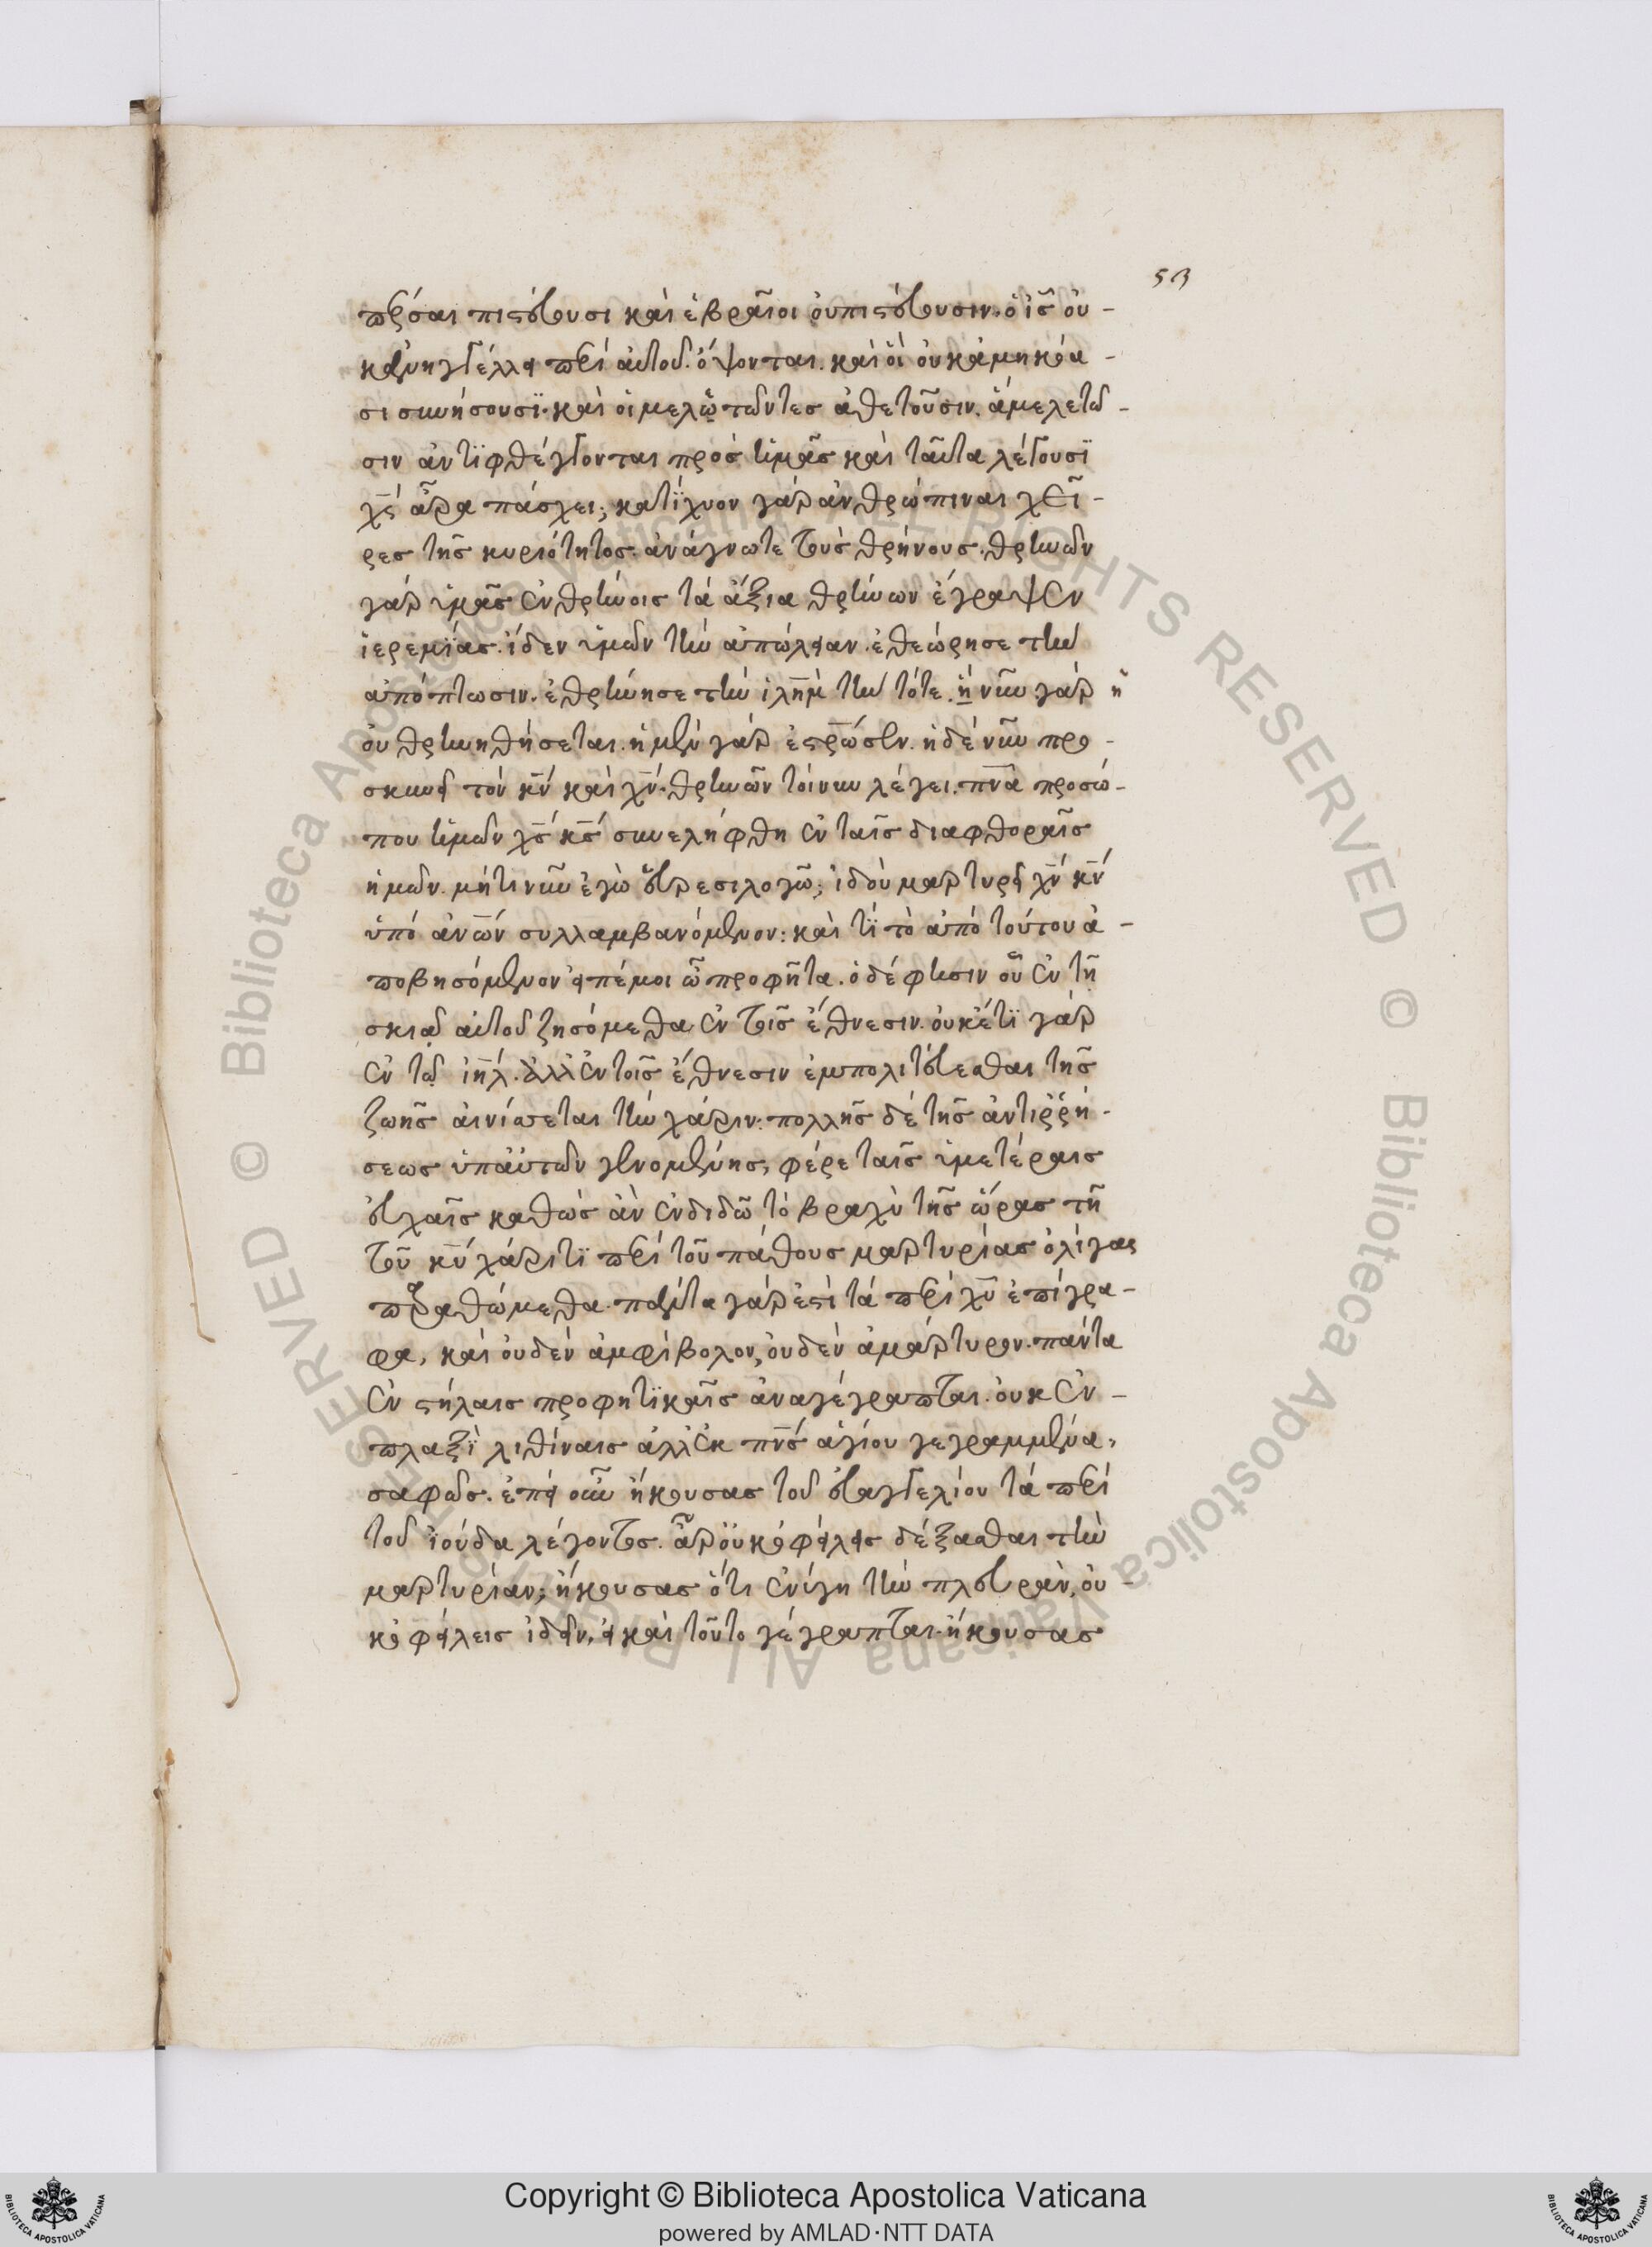 53
πέρσαι πιστεύουσι καὶ ἑβραῖοι οὐ πιστεύουσιν. οἷς οὐ-
κ ἀνηγγέλλη περὶ αὐτοῦ ὄψονται. καὶ οἳ οὐκ ἀκηκόα-
σι συνήσουσϊ. καὶ οἱ μελετῶντες ἀθετοῦσιν. ἃ μελετῶ-
σιν ἀντϊφθέγγονται πρὸς ὑμᾶς καὶ ταῦτα λέγουσϊ
χς ἆρα πάσχει; κατΐσχυον γὰρ ἀνθρώπιναι χεῖ-
ρες τῆς κυριότητος. ἀνάγνωτε τοὺς θρήνους. θρηνῶν
γὰρ ὑμᾶς ἐν θρήνοις τὰ ἄξια θρήνων ἔγραψεν
ἱερεμίας. ἴδεν ὑμῶν τὴν ἀπώλειαν. ἐθεώρησε τὴν
ἀπόπτωσιν. ἐθρήνησε τὴν ἱλημ τὴν τότε. ἡ νῦν γὰρ ἡ
οὐ θρηνηθήσεται. ἡ μὲν γὰρ ἐσρωσεν. ἡ δὲ νῦν προ-
σκυνεῖ τὸν κν καὶ χν. θρηνῶν τοίνυν λέγει. πνα προσώ-
που ὑμῶν χς κς συνελήφθη ἐν ταῖς διαφθοραῖς
ἡμῶν. μήτι νῦν ἐγὼ εὑρεσιλογῶ; ἰδοὺ μαρτυρεῖ χν κν
ὑπὸ ανων συλλαμβανόμενον: καὶ τί τὸ ἀπὸ τούτου ἀ-
ποβησόμενον εἰπέ μοι ὦ προφῆτα. ὁ δέ φησιν οὗ ἐν τῇ
σκιᾷ αὐτοῦ ζησόμεθα ἐν τοῖς ἔθνεσιν. οὐκέτϊ γὰρ
ἐν τῷ ιηλ. ἀλλ' ἐν τοῖς ἔθνεσιν ἐμπολιτεύεσθαι τῆς
ζωῆς αἰνίσσεται τὴν χάριν: πολλῆς δὲ τῆς ἀντιρρή-
σεως ὑπ' αὐτῶν γενομένης, φέρε ταῖς ὑμετέραις
εὐχαῖς καθὼς ἂν ἐνδιδῶ τὸ βραχὺ τῆς ὥρας τῇ
τοῦ κυ χάριτϊ περὶ τοῦ πάθους μαρτυρίας ὀλίγας
παραθώμεθα. πάντα γὰρ ἐστὶ τὰ περὶ χυ ἐπίγρα-
φα, καὶ οὐδὲν ἀμφίβολον, οὐδὲν ἀμάρτυρον. πάντα
ἐν στήλαις προφητϊκαῖς ἀναγέγραπται. οὐκ ἐν-
πλαξὶ λιθίναις ἀλλ' ἐκ πνς ἁγίου γεγραμμένα,
σαφῶς. ἐπεὶ οὖν ἤκουσας τοῦ εὐαγγελίου τὰ περὶ
τοῦ ἰούδα λέγοντος. ἆρ' οὐκ ὀφείλεις δέξασθαι τὴν
μαρτυρίαν; ἤκουσας ὅτι ἐνύγη τὴν πλευρὰν, οὐ-
κ ὀφείλεις ἰδεῖν, εἰ καὶ τοῦτο γέγραπται. ἤκουσας